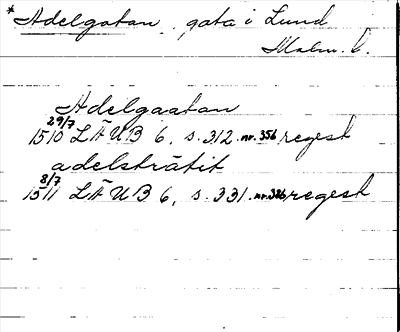 *Adelgatan, gata i Lund
Malm. l.
Adelgaatan
29/7
1510 LÄUB 6, s. 312. nr. 356 regest
adelsträtit
8/7
1511 LÄUB 6, s. 331. nr. 386 regest